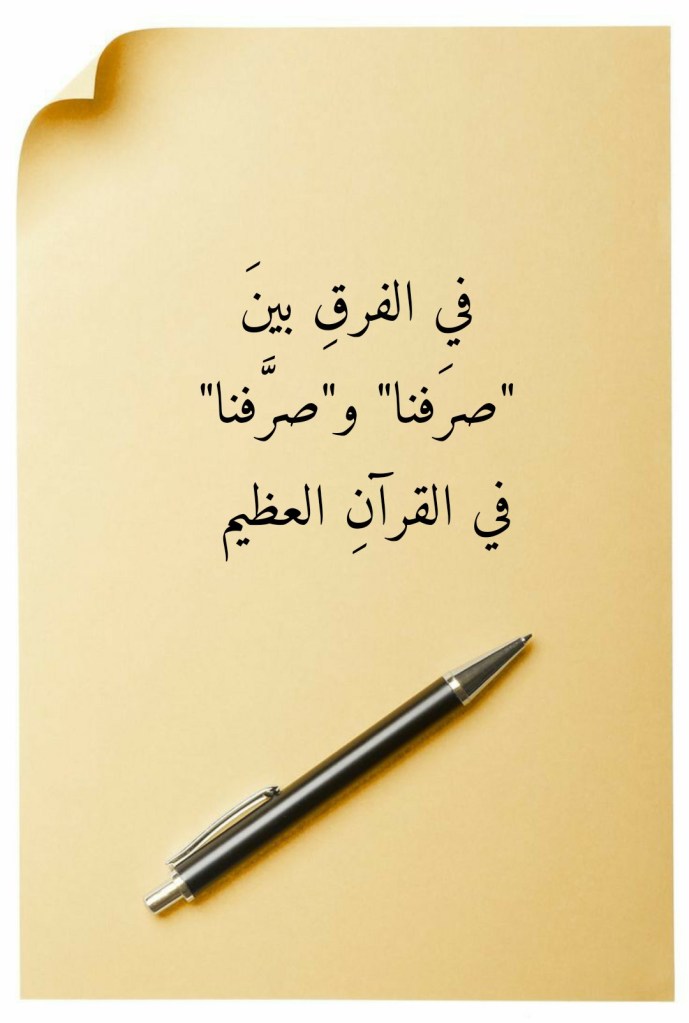 في الفرقِ بينَ
"صرَفنا" و"صرَّفنا"
في القرآنِ العظيم